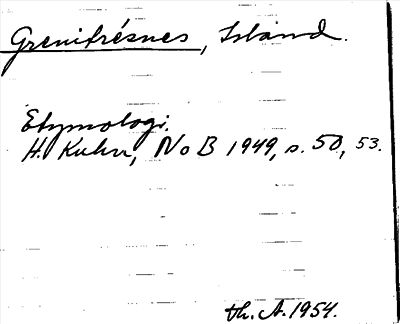 Grenitrésnes, Island.
Etymologi.
H. Kuhn, NoB 1949, s. 50, 53.
th. A. 1954.